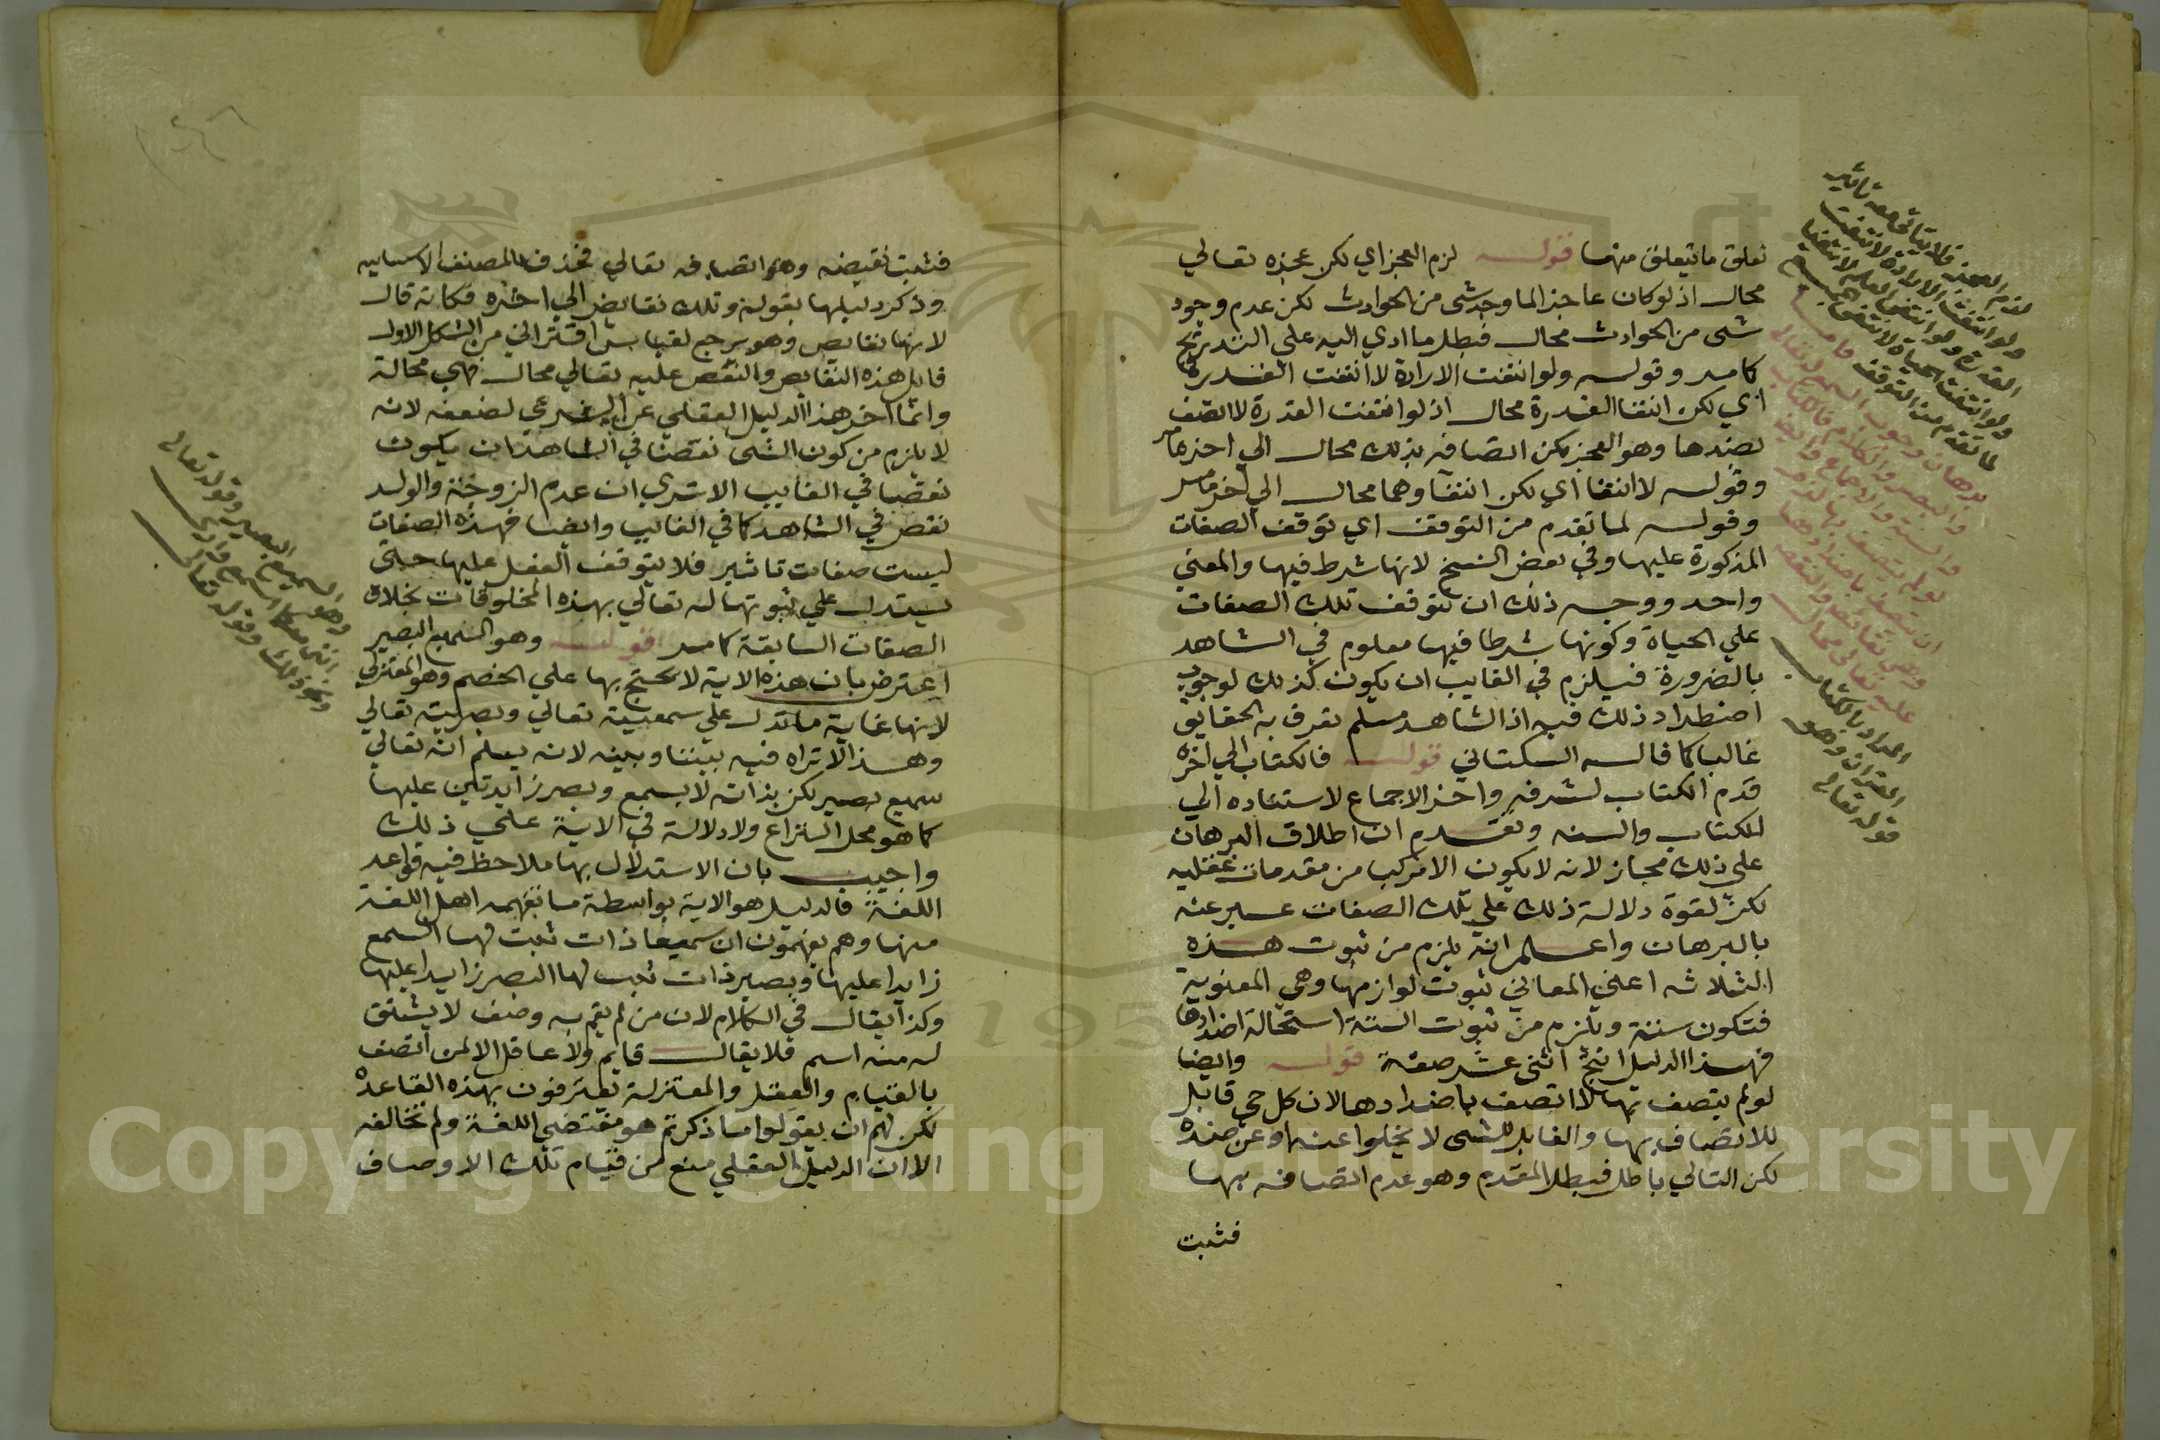 تعلق ما يتعلق منها قوله لزم العجز اي لكن عجزه تعالي
محال اذ لو كان عاجزا لما وجد شى من الحوادث لكن عدم وجود
شى من الحوادث محال فبطل ما ادي اليه علي التدريج
كما مر وقوله ولو انتفت الارادة لانتفت القدرة
اي لكن انتفا القدرة محال اذ لو انتفت القدرة لاتصف
بضدها وهو العجز لكن اتصافه بذلك محال الي اخر ما مر
وقوله لا انتفا اي لكن انتفاوهما محال الي اخر ما مر
وقوله لما تقدم من التوقف اي توقف الصفات
المذكورة عليها وفي بعض النسخ لانها شرط فيها والمعني
واحد ووجه ذلك ان تتوقف تلك الصفات
علي الحياة وكونها شرطا فيها معلوم في الشاهد
بالضرورة فيلزم في الغايب ان يكون كذلك لوجوب
اضطراد ذلك فيه اذ الشاهد مسلم تعرف به الحقايق
غالبا كما قاله السكتاني قوله فالكتاب الي اخره
قدم الكتاب لشرفه واخر الاجماع لاستناده الي
الكتاب والسنه وتقدم ان اطلاق البرهان
علي ذلك مجاز لانه لا يكون الا مركب من مقدمات عقليه
لكن لقوة دلالة ذلك علي تلك الصفات عبر عنه
بالبرهان واعلم انه يلزم من ثبوت هذه
الثلاثه اعني المعاني ثبوت لوازمها وهي المعنوية
فتكون ستة ويلزم من ثبوت الستة استحالة اضدادها
فهذا الدليل انتج اثني عشر صفة قوله وايضا
لو لم يتصف بها لا اتصف باضدادها لان كل حي قابل
للاتصاف بها والقابل للشى لا يخلوا عنه او عن ضده
لكن التالي باطل فبطل المقدم وهو عدم اتصافه بها
فثبت
لزم العجز
ولو انتفت الارادة لانتفت
القدرة ولو انتفى العلم لانتفيا
ولو انتفت الحياة لانتفى الجميع
لما تقدم من التوقف
برهان وجوب السمع له تعالى
والبصر والكلام فالكتاب
والسنة والاجماع وايضا
لو لم يتصف بها لزم
ان يتصف باضدادها
وهي نقائص والنقص
عليه تعالى محال
المراد بالكتاب
القران وهو
قوله تعالى
فثبت نقيضه وهو اتصافه تعالي فحذف المصنف الاستثنايه
وذكر دليلها بقوله وتلك نقايص الي اخره فكانه قال
لانها نقايص وهو يرجع لقياس اقتراني من الشكل الاول
قايل هذه النقايص والنقص عليه تعالي محال فهي محالة
وانما اخر هذا الدليل العقلي عن الشرعي لضعفه لانه
لا يلزم من كون الشى نقصا في الشاهد ان يكون
نقصا في الغايب الا تري ان عدم الزوجة والولد
نقص في الشاهد كما في الغايب وايضا فهذه الصفات
ليست صفات تاثير فلا يتوقف الفعل عليها حتى
يستدل علي ثبوتها له تعالي بهذه المخلوقات بخلاف
الصفات السابقة كما مر قوله وهو السميع البصير
اعترض بان هذه الاية لا يحتج بها علي الخصم وهو المعتزلي
لانها غاية ما تدل علي سمعيته تعالي وبصريته تعالي
وهذا لا نزاه فيه بيننا وبينه لانه يسلم انه تعالي
سميع بصير لكن بذاته لا بسمع وبصر زايدتين عليها
كما هو محل النزاع ولا دلالة في الاية علي ذلك
واجيب بان الاستدلال بها ملاحظ فيه قواعد
اللغة فالدليل هو الاية بواسطة ما يفهمه اهل اللغة
منها وهم يفهمون ان سميعا ذات ثبت لها السمع
زايدا عليها وبصير ذات ثبت لها البصر زايدا عليها
وكذا يقال في الكلام لان من لم يقم به وصف لا يشتق
له منه اسم فلا يقال قايم ولا عاقل الا لمن اتصف
بالقيام والعقل والمعتزلة يعترفون بهذه القاعدة
لكن لهم ان يقولوا ما ذكرتم هو مقتضي اللغة ولم نخالفه
الا ان الدليل العقلي منع من قيام تلك الاوصاف
وهو السميع البصير وقوله تعالى
انني معكما اسمع وارى
ونحو ذلك وقوله تعالى
Copyright © King Saud University
195